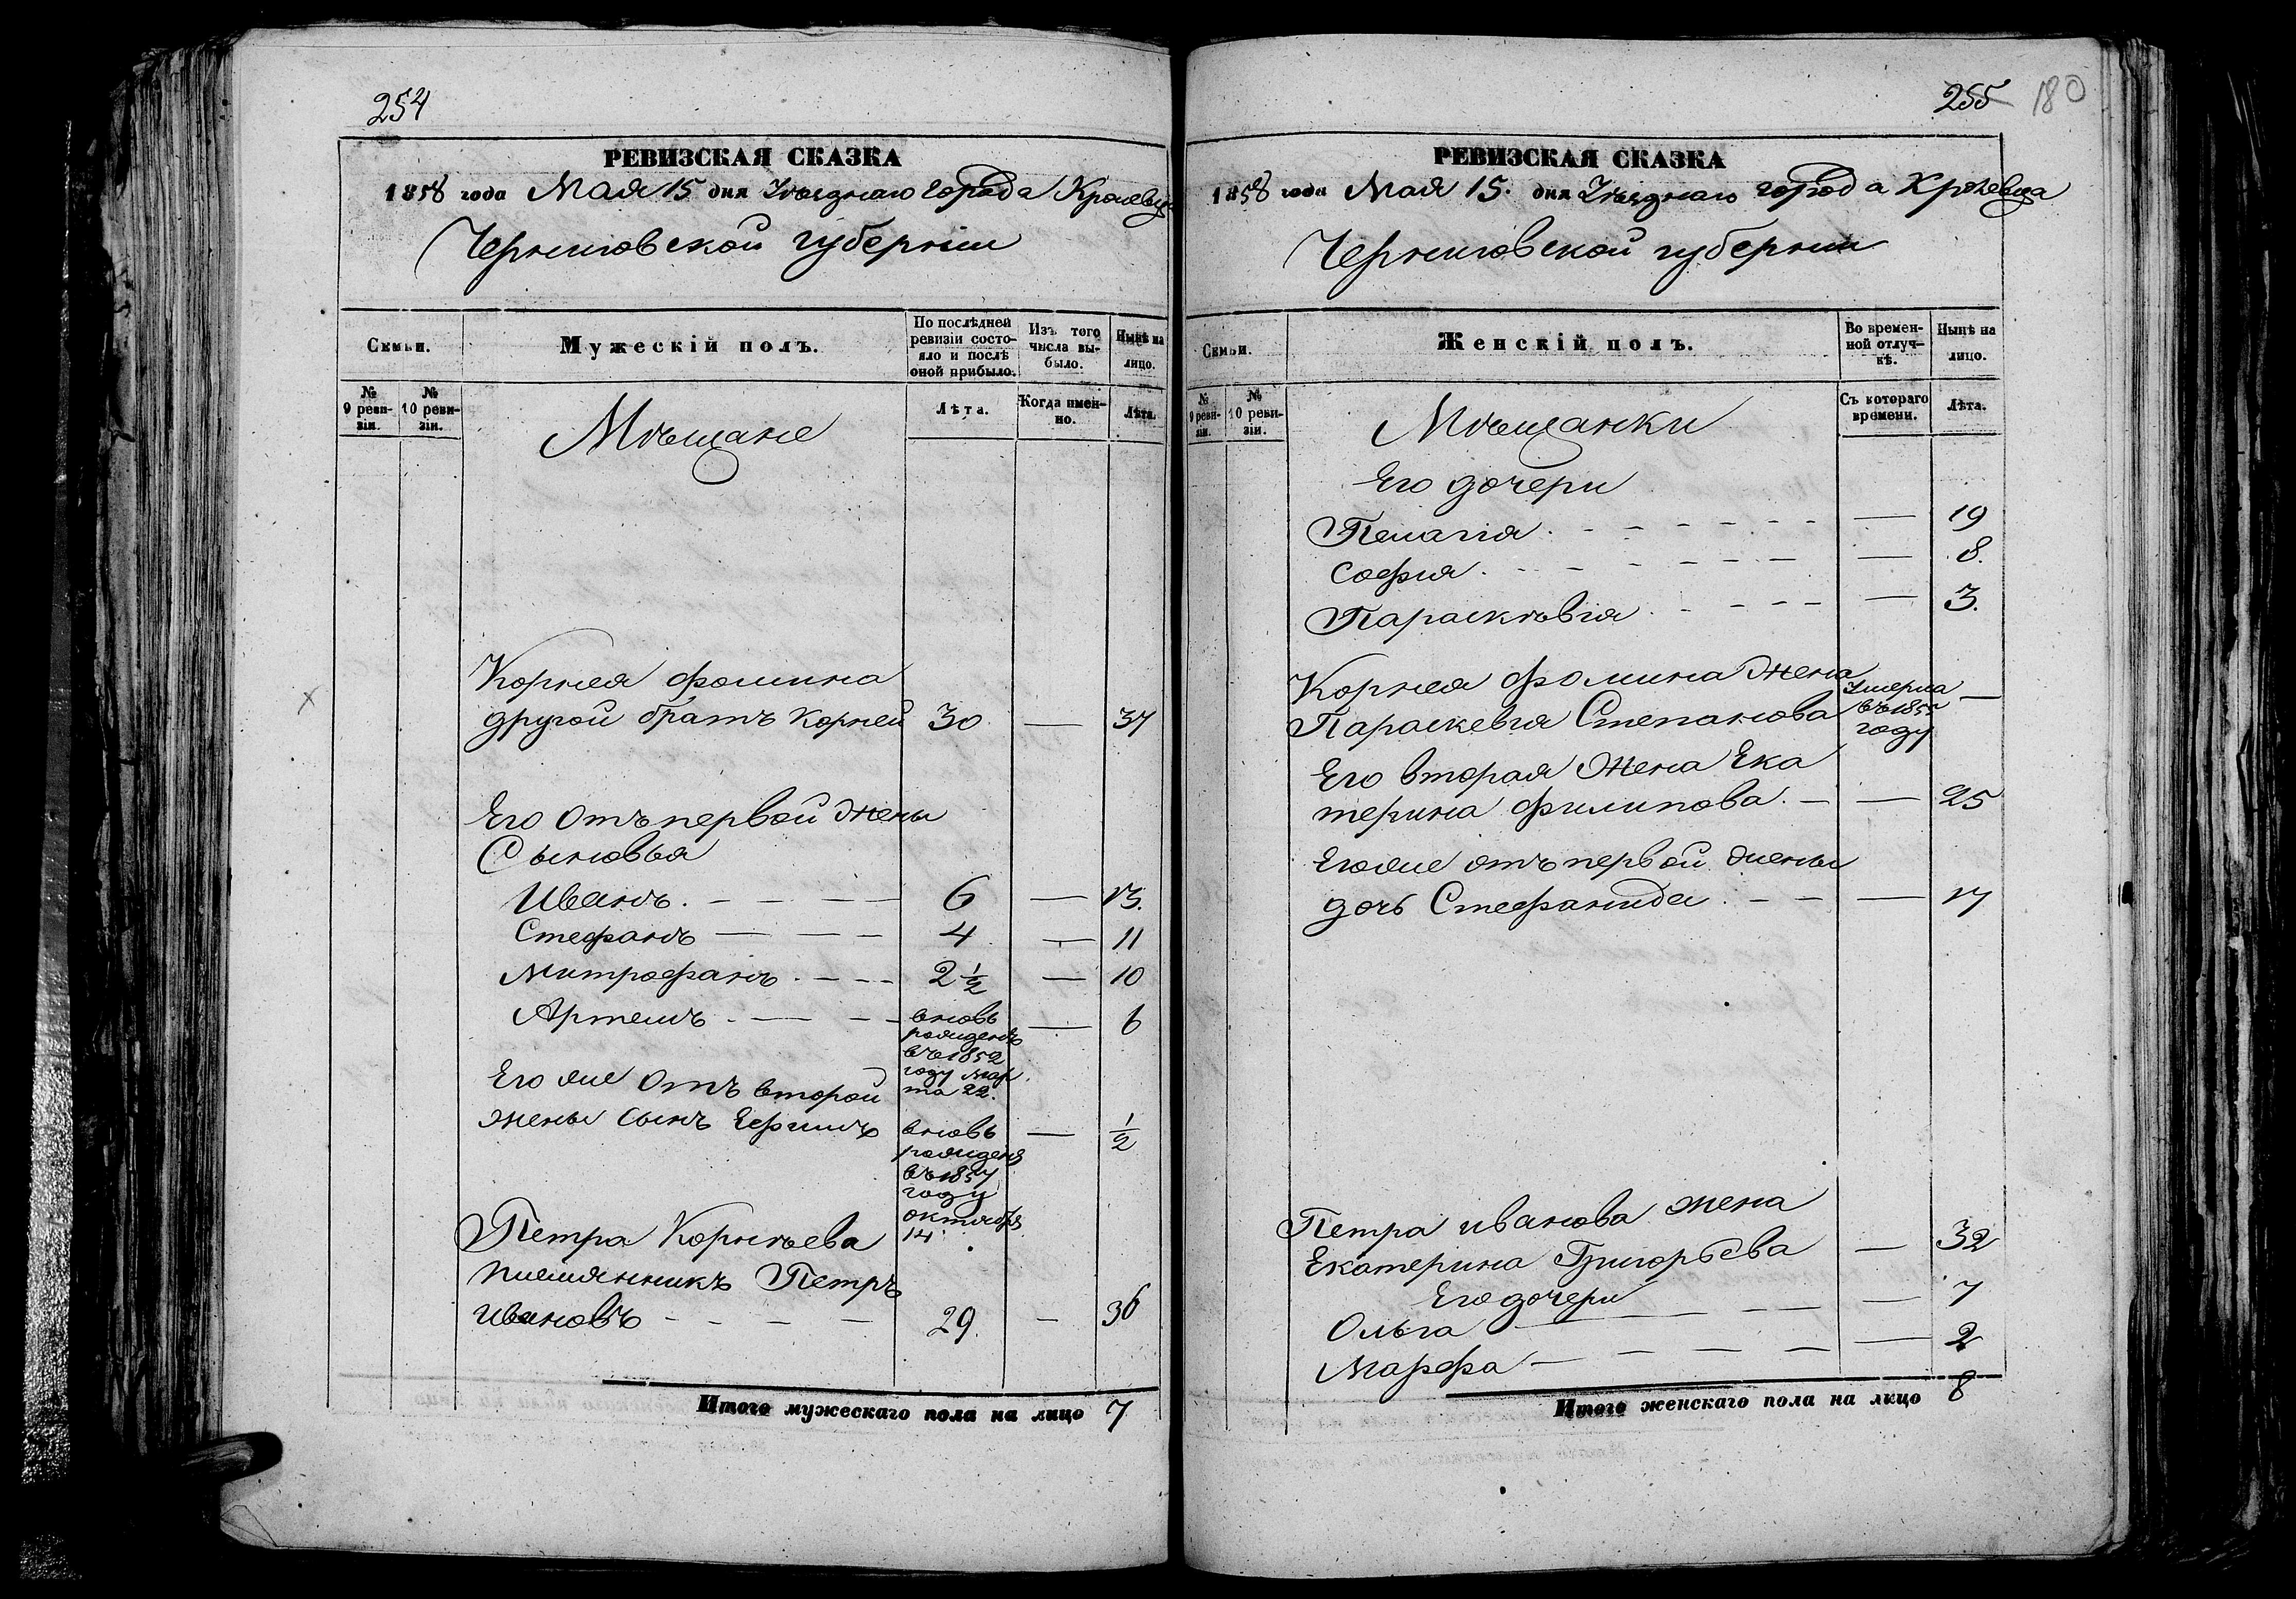 254
РЕВИЗСКАЯ СКАЗКА
1858 года Мая 15 дня Уѣзднаго города Кролевца
Черниговской губерніи
Семьи.
Мужескій полъ.
По послѣдней ревизіи состояло и послѣ оной прибыло.
Изъ того числа выбыло.
Нынѣ на лицо.
№ 9 ревизіи.
№ 10 ревизіи.
Лѣта.
Когда именно.
Лѣта.
Мѣщане
Корнея Фомина
другой братъ Корней 30 — 37
Его отъ первой жены
Сыновья
Иванъ. — — — — 6 — 13.
Стефанъ — — — 4 — 11
Митрофанъ. — — — 2 1/2 — 10
Артемъ — — — вновь — 6
рожденъ
въ 1852
году мар
та 22.
Его же отъ второй
жены сынъ Ефимъ вновь — 1/2
рожденъ
въ 1857
году
октября
14
Петра Корнѣева
племянникъ Петръ
Ивановъ — — — — 29. — 36
Итого мужескаго пола на лицо 7
255 180
РЕВИЗСКАЯ СКАЗКА
1858 года Мая 15. дня Уѣзднаго города Кролевца
Черниговской губерніи
Семьи.
Женскій полъ.
Во временной отлучкѣ.
Нынѣ на лицо.
№ 9 ревизіи.
№ 10 ревизіи.
Съ котораго времени.
Лѣта.
Мѣщанки
Его дочери
Пелагія. — — — — — — 19
София. — — — — — — 8.
Параскѣвія — — — — — 3.
Корнея Фомина жена
Параскевія Степанова Умерла въ 1855 году —
Его вторая жена Ека
терина Филипова. — — 25
Его же отъ первой жены
дочь Стефанида. — — — 17
Петра Иванова жена
Екатерина Григорьева — 32
Его дочери
Ольга — — — — — 7
Марфа — — — — — 2
Итого женскаго пола на лицо 8